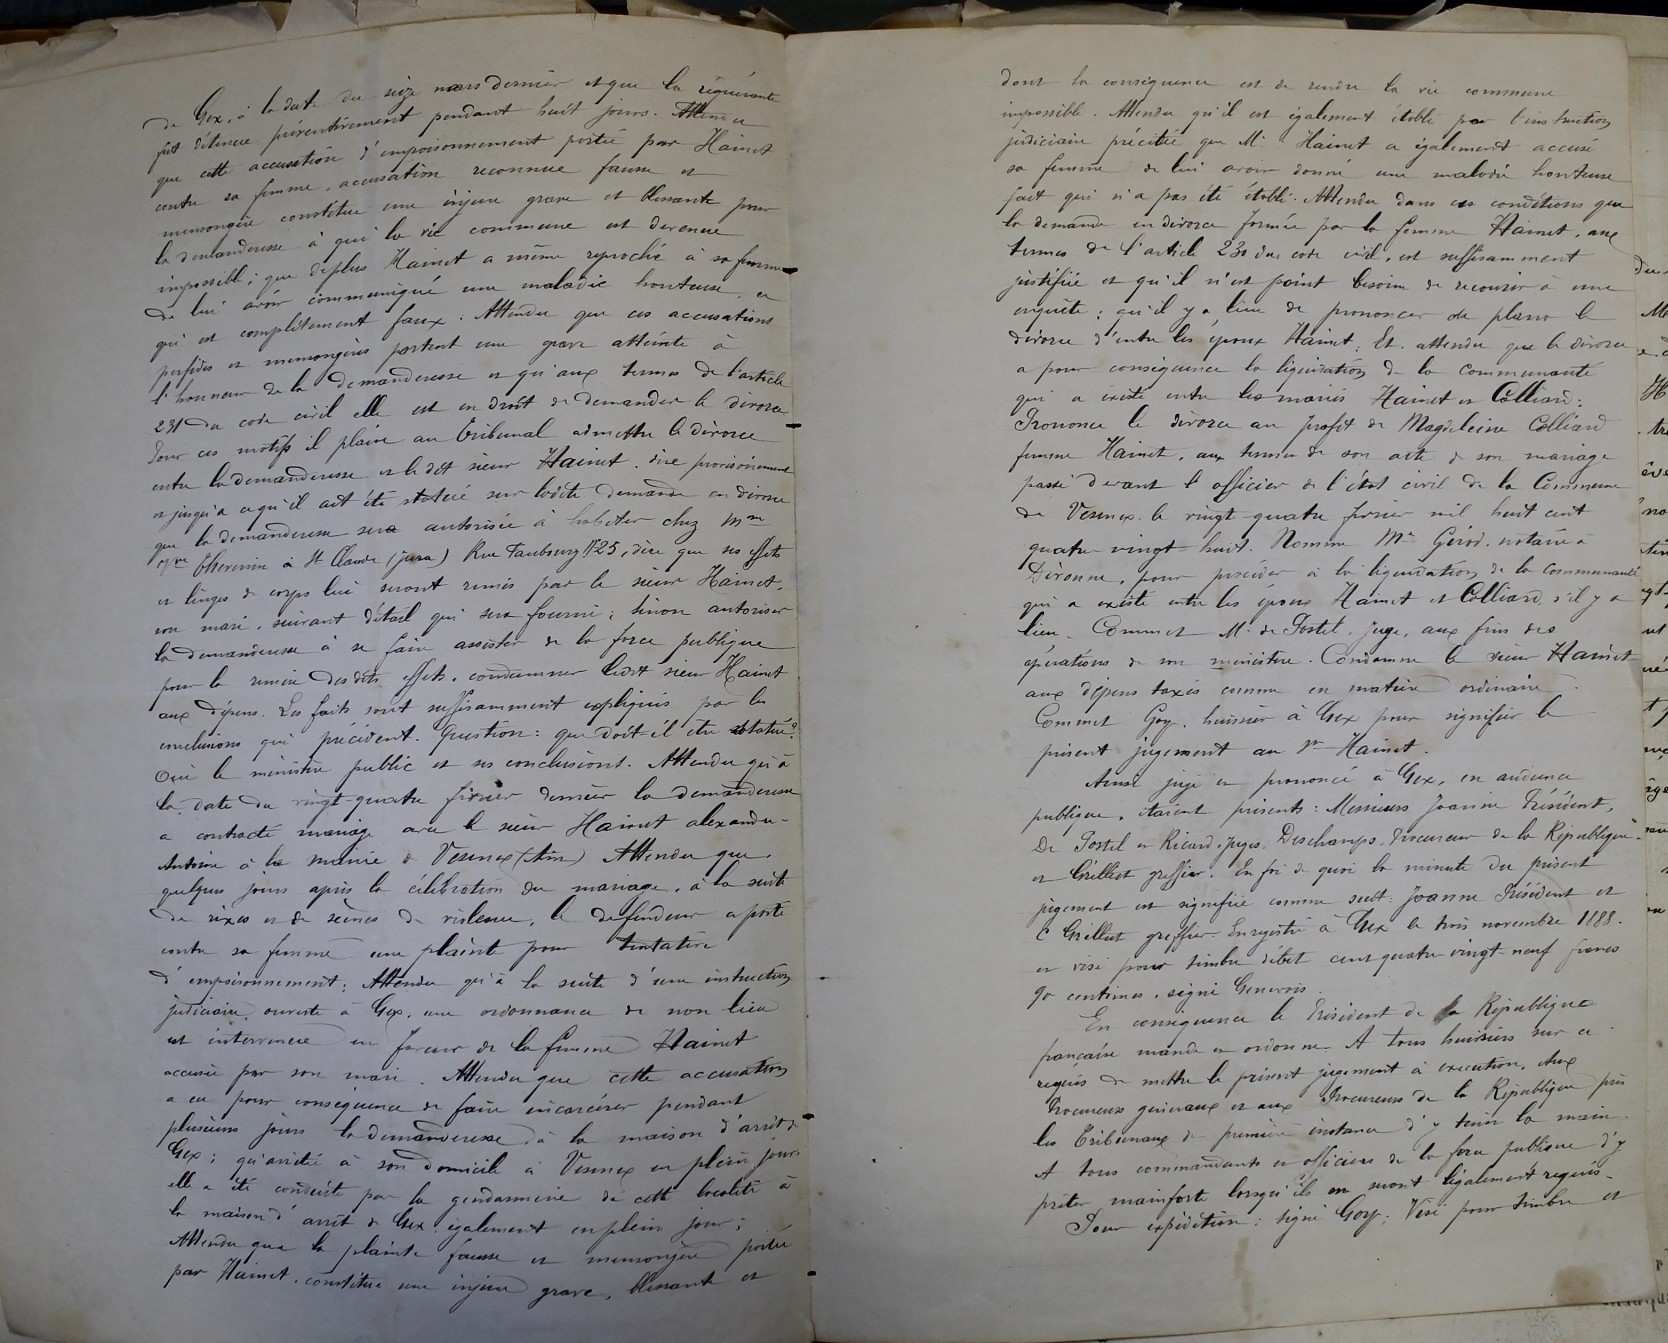 de Gex, à la date du seize mars dernier et que la requérante
fut détenue préventivement pendant huit jours. Attendu
que cette accusation d'empoisonnement portée par Hainet
contre sa femme, accusation reconnue fausse et
mensongère constitue une injure grave et blessante pour
la demanderesse à qui la vie commune est devenue
impossible ; que deplus Hainet a même reproché à sa femme
de lui avoir communiqué une maladie honteuse, ce
qui est complètement faux : Attendu que ces accusations
perfides et mensongères portent une grave atteinte à
l'honneur de la demanderesse et qu'aux termes de l'article
231 du code civil elle est en droit de demander le divorce
Pour ces motifs il plaira au tribunal admettre le divorce
entre la demanderesse et le dit sieur Hainet. dire provisoirement
et jusqu'à ce qu'il ait été statué sur ladite demande en divorce
que la demanderesse sera autorisée à habiter chez Mme
Thévenin à St Claude (jura) Rue Faubourg No 25, dire que ses effets
et linges de corps lui seront remis par le sieur Hainet,
son mari, suivant détail qui sera fourni ; sinon autoriser
la demanderesse à se faire assister de la force publique
pour la remise desdits effets. condamner ledit sieur Hainet
aux dépens. Les faits sont suffisamment expliqués par les
conclusions qui précèdent. Question : que doit-il être statué ?
Oui le ministère public et ses conclusions. Attendu qu'à
la date du vingt-quatre février dernier la demanderesse
a contracté mariage avec le sieur Hainet alexandre-
Antoine à la mairie de Vesenex (Ain) Attendu que
quelques jours après la célébration du mariage, à la suite
de rixes et de scènes de violence, le defendeur a porté
contre sa femme une plainte pour tentative
d'empoisonnement : Attendu qu'à la suite d'une instruction
judiciaire, ouverte à Gex, une ordonnance de non lieu
est intervenue en faveur de la femme Hainet
accusée par son mari. Attendu que cette accusation
a eu pour conséquence de faire incarcérer pendant
plusieurs jours la demanderesse à la maison d'arrêt de
Gex ; qu'arrêtée à son domicile à Vesenex en plein jour
elle a été conduite par la gendarmerie de cette localité à
la maison d'arrêt de Gex également en plein jour ;
Attendu que la plainte fausse et mensongère portée
par Hainet, constitue une injure grave, blessante et
dont la conséquence est de rendre la vie commune
impossible. Attendu qu'il est également établi par l'instruction
judiciaire précitée que Mr Hainet a également accusé
sa femme de lui avoir donné une maladie honteuse
fait qui n'a pas été établi. Attendu dans ces conditions que
la demande en divorce formée par la femme Hainet, aux
termes de l'article 231 du code civil, est suffisamment
justifiée et qu'il n'est point besoin de recourir à une
enquête ; qu'il y a lieu de prononcer de plano le
divorce d'entre les époux Hainet. Et attendu que le divorce
a pour conséquence la liquidation de la communauté
qui a existé entre les mariés Hainet et Colliard :
Prononce le divorce au profit de Magdeleine Colliard
femme Hainet, aux termes de son acte de son mariage
passé devant l'officier de l'état civil de la Commune
de Vesenex le vingt-quatre février mil huit cent
quatre-vingt-huit. Nomme Me Gérod, notaire à
Divonne, pour procéder à la liquidation de la communauté
qui a existé entre les époux Hainet et Colliard, s'il y a
lieu. Commet M. de Postel, juge, aux fins des
opérations de son ministère. Condamne le sieur Hainet
aux dépens taxés comme en matière ordinaire.
Commet Goy, huissier à Gex pour signifier le
présent jugement au Sr Hainet.
Ainsi jugé et prononcé à Gex, en audience
publique, étaient présents : Messieurs Joanin Président,
De Postel et Ricard, juges. Deschamps, Procureur de la République
et Grilliet greffier. En foi de quoi la minute du présent
jugement est signifiée comme suit : Joanin Président et
C Grilliet greffier. Enregistré à Gex le trois novembre 1888.
et visé pour timbre débet cent quatre vingt-neuf francs
90 centimes. signé
En conséquence le Président de la République
française mande et ordonne. A tous huissiers sur ce
requis de mettre le présent jugement à exécution, Aux
Procureurs généraux et aux Procureurs de la République près
les Tribunaux de première instance d'y tenir la main.
A tous commandants et officiers de la force publique d'y
prêter mainforte lorsqu'ils en seront légalement requis.
Pour expédition : signé Goy ; Visé pour timbre et